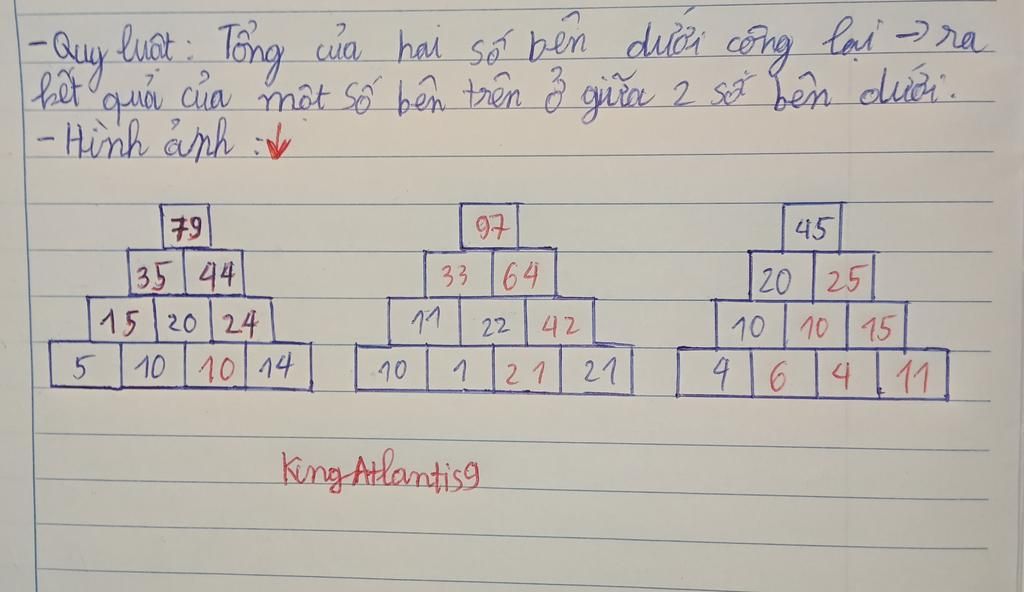 - Quy luật: Tổng của hai số bên dưới cộng lại → ra
kết quả của một số bên trên ở giữa 2 số bên dưới.
- Hình ảnh : ↓
79 97 45
35 44 33 64 20 25
15 20 24 11 22 42 10 10 15
5 10 10 14 10 1 21 21 4 6 4 11
KingAtlantis9